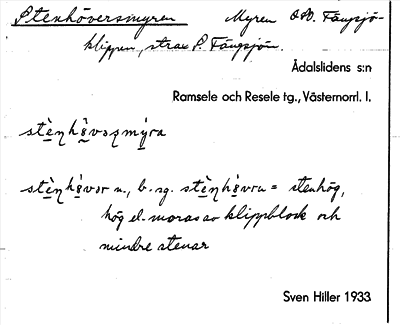 Stenhöversmyren Myren OSO. Fängsjö-
klippen, strax S. Fängsjön.
Ådalslidens s:n
Ramsele och Resele tg., Västernorrl. l.
stènhø̀vəsmýra
stènhø̀vər n., b. sg. stènhø̀vrə = stenhög,
hög el. moras av klippblock och
mindre stenar
Sven Hiller 1933